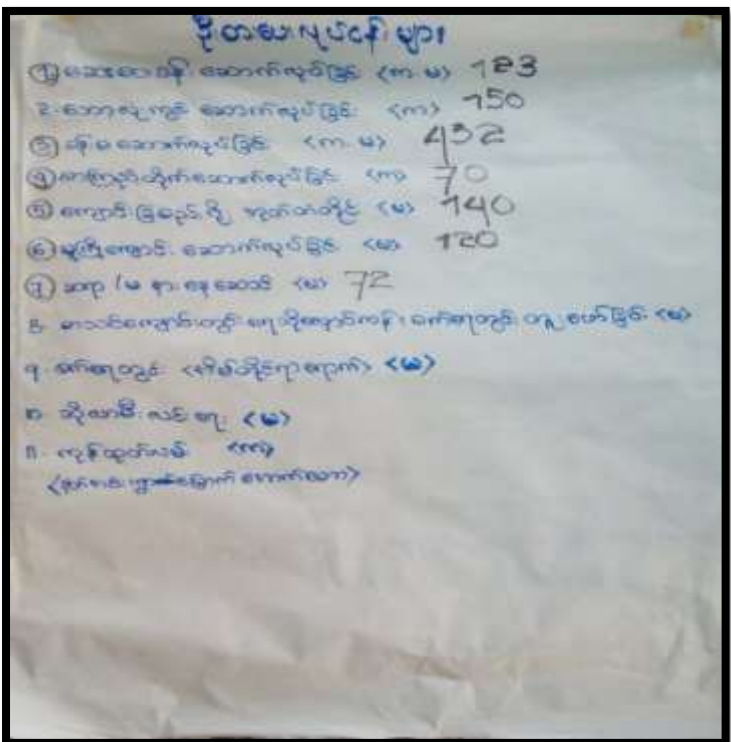 ဦးစားပေးလုပ်ငန်းများ
① ဆေးပေးခန်း ဆောက်လုပ်ခြင်း <က.မ> 183
2. ဘောလုံးကွင်း ဆောက်လုပ်ခြင်း <က> 150
③ ဆောက်လုပ်ခြင်း <က.မ> 432
④ ဆောက်လုပ်ခြင်း <က> 70
⑤ ကျောင်းခြံစည်းရိုး အုတ်တံတိုင်း <မ> 140
⑥ မူကြိုကျောင်း ဆောက်လုပ်ခြင်း <မ> 120
⑦ ဆရာ/မ နားနေဆောင် <မ> 72
8. စာသင်ကျောင်းတွင် ရေသိုလှောင်ကန်၊ စက်ရေတွင်း တူးဖော်ခြင်း <မ>
၉. စက်ရေတွင်း <အိမ်တိုင်ရာရောက်> <မ>
၁၀. ဆိုလာမီး လင်းရေး <မ>
၁၁. ကုန်ထုတ်လမ်း <က>